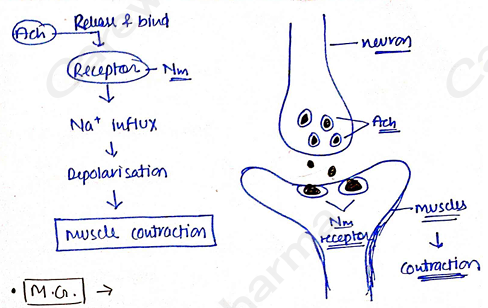 Ach
Release & bind
Receptor - Nm
Na+ influx
Depolarisation
Muscle contraction
• M.G. →
neuron
Ach
Nm
receptor
Muscles
contraction